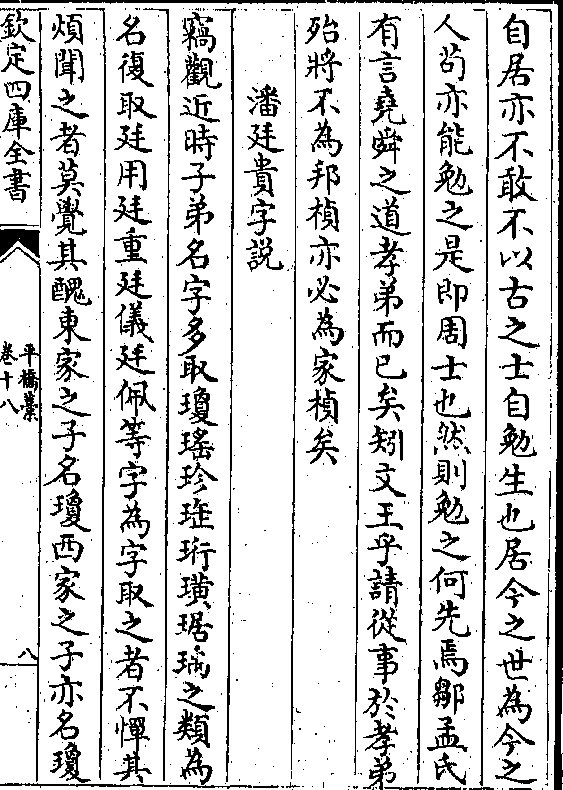 自居亦不敢不以古之士自勉生也居今之世為今之
人苟亦能勉之是即周士也然則勉之何先焉鄒孟氏
有言堯舜之道孝弟而已矣矧文王乎請從事於孝弟
殆將不為邦楨亦必為家楨矣
潘廷貴字説
竊觀近時子弟名字多取瓊瑤珍珽珩璜琚瑀之類為
名復取廷用廷重廷儀廷佩等字為字取之者不憚其
煩聞之者莫覺其醜東家之子名瓊西家之子亦名瓊
欽定四庫全書
平橋藁
卷十八
八